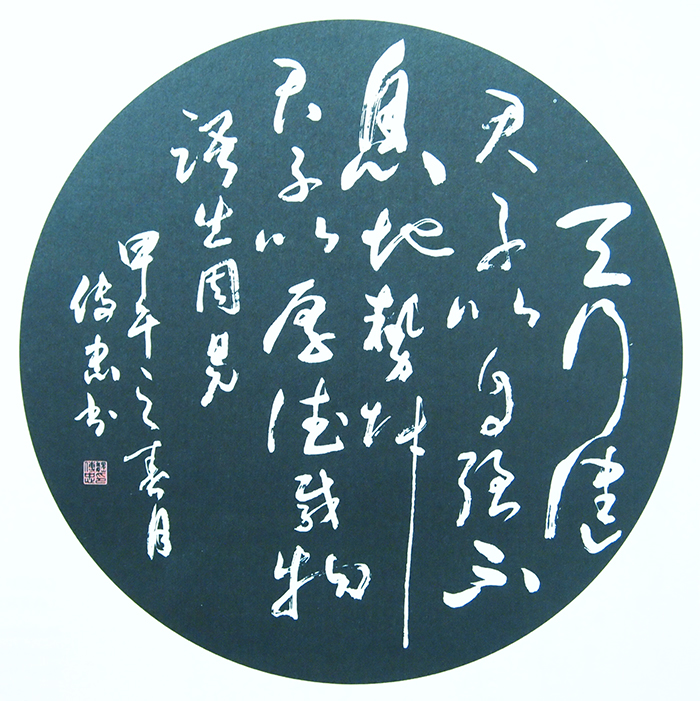 天行健
君子以自强不
息地勢坤
君子以厚德载物
语出周易
甲午之春月
传忠书